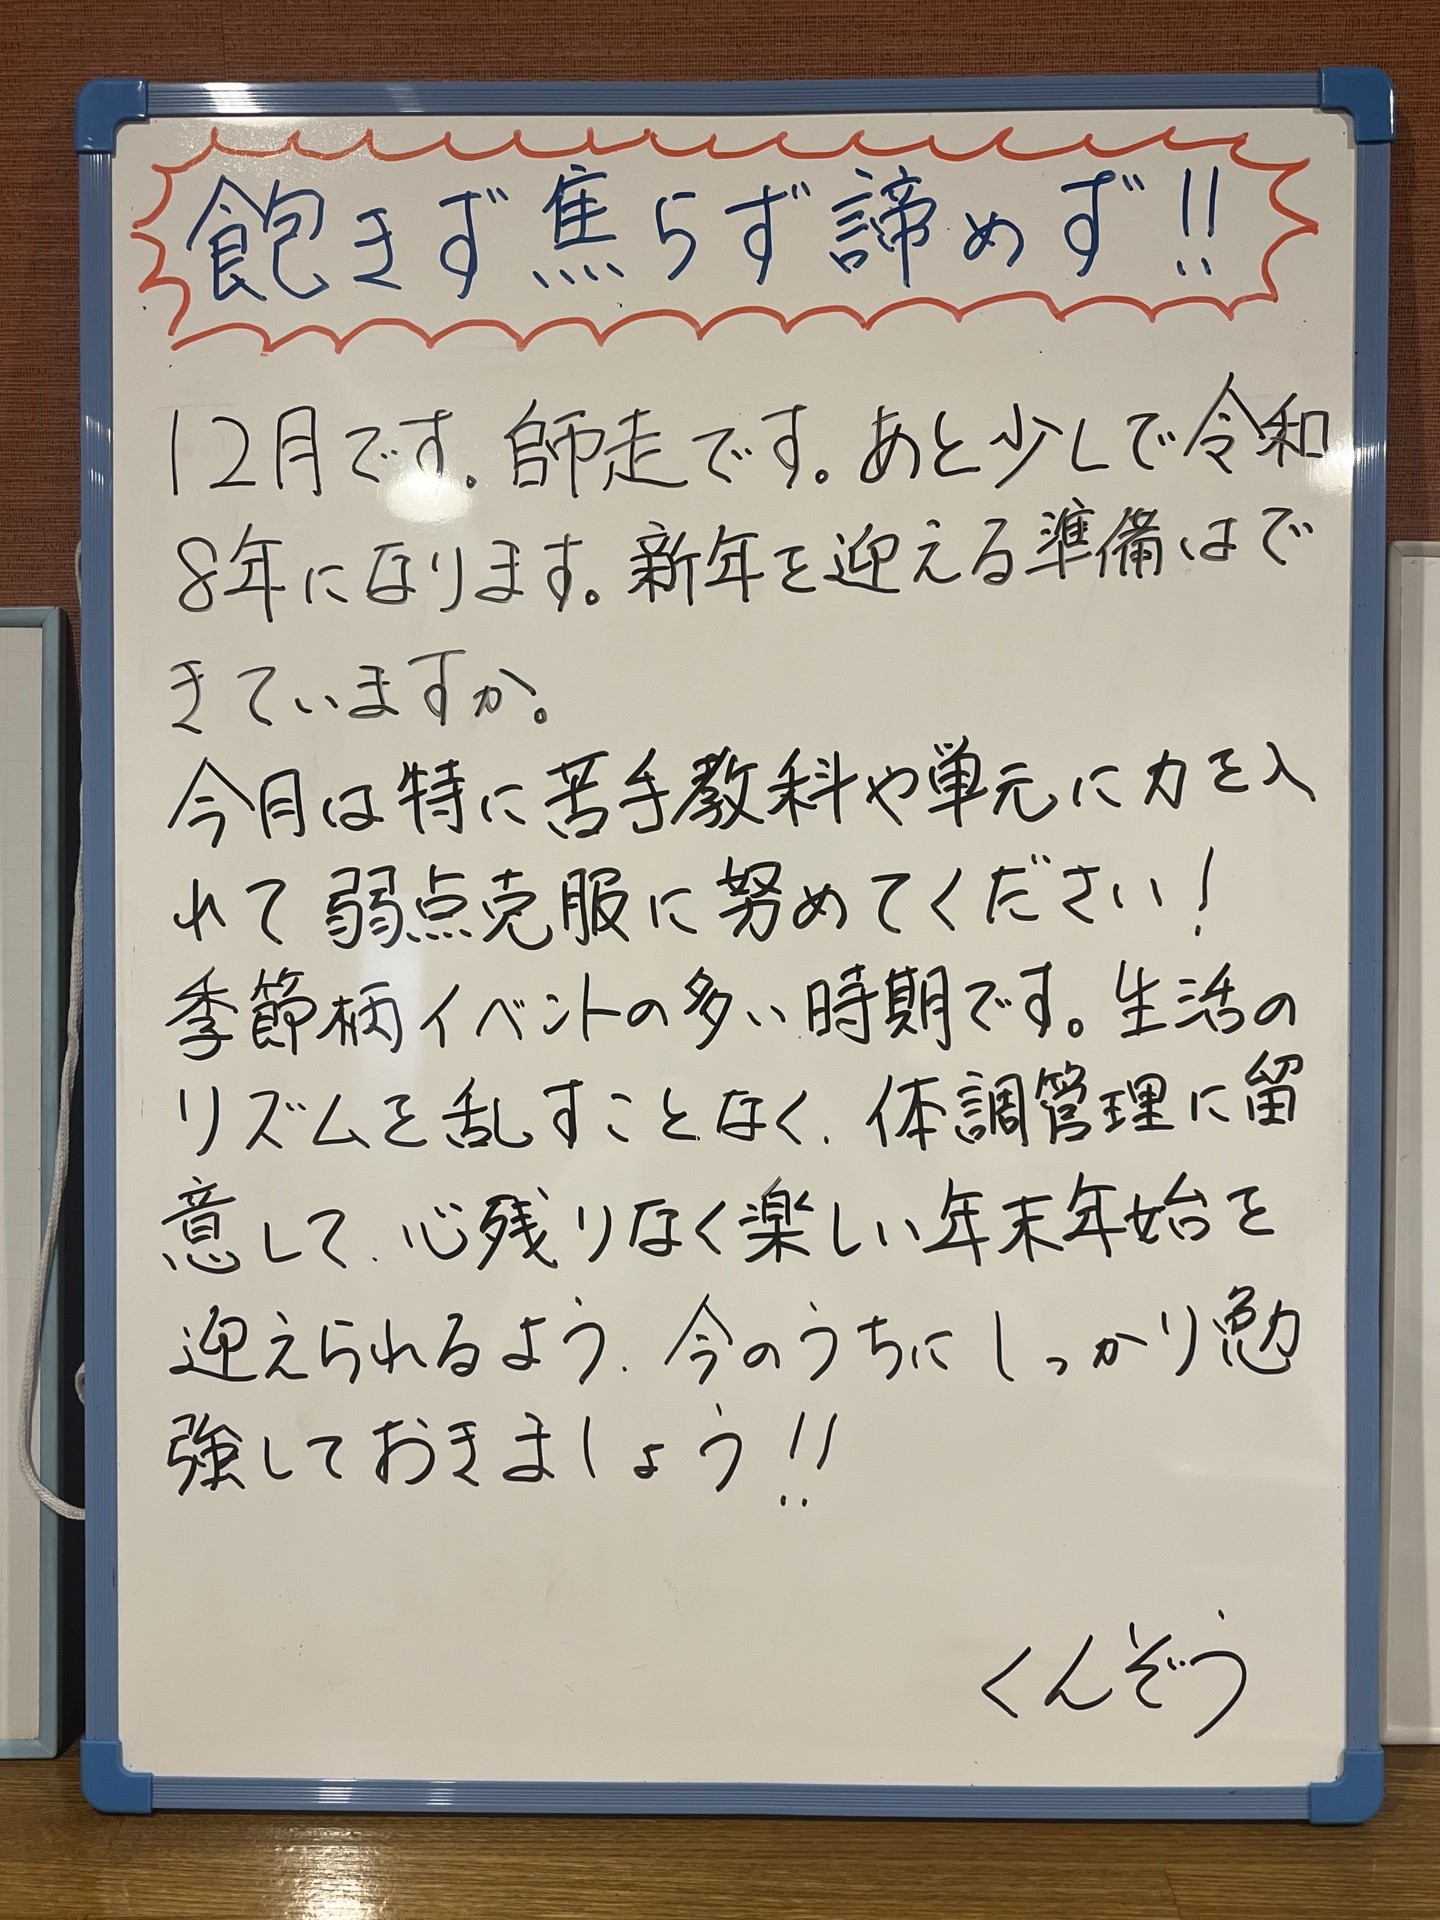 飽きず焦らず諦めず!!
12月です。師走です。あと少しで令和
8年になります。新年を迎える準備はで
きていますか。
今月は特に苦手教科や単元に力を入
れて弱点克服に努めてください!
季節柄イベントの多い時期です。生活の
リズムを乱すことなく、体調管理に留
意して、心残りなく楽しい年末年始を
迎えられるよう、今のうちにしっかり勉
強しておきましょう!!
くんぞう